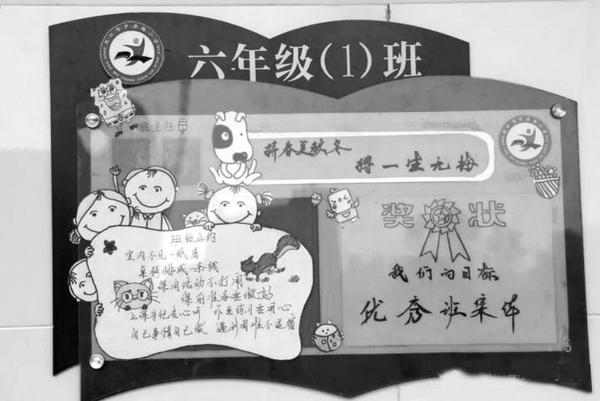 六年级(1)班
班主任
拼春夏秋冬
搏一生无悔
奖状
我们的目标
优秀班集体
班级公约
室内不见一纸屑
桌椅排成一条线
课间活动不打闹
课前准备要做好
上课专心听 作业练习要用心
自己事情自己做